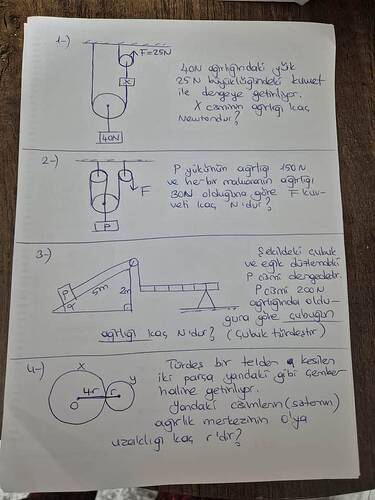 1-)
F=25N
X
40N
40N ağırlığındaki yük
25N büyüklüğündeki kuvvet
ile dengeye getiriliyor.
X cisminin ağırlığı kaç
Newtondur?
2-)
F
P
P yükünün ağırlığı 150N
ve her bir makaranın ağırlığı
30N olduğuna göre F kuv-
veti kaç N'dur?
3-)
P
α
5m
2m
Şekildeki çubuk
ve eğik düzlemdeki
P cismi dengededir.
P cismi 200N
ağırlığında oldu-
ğuna göre çubuğun
ağırlığı kaç N'dur? (Çubuk türdeştir)
4-)
X
y
4r
r
O
Türdeş bir telden kesilen
iki parça yandaki gibi çember
haline getiriliyor.
Yandaki cisimlerin (sistemin)
ağırlık merkezinin O'ya
uzaklığı kaç r'dir?